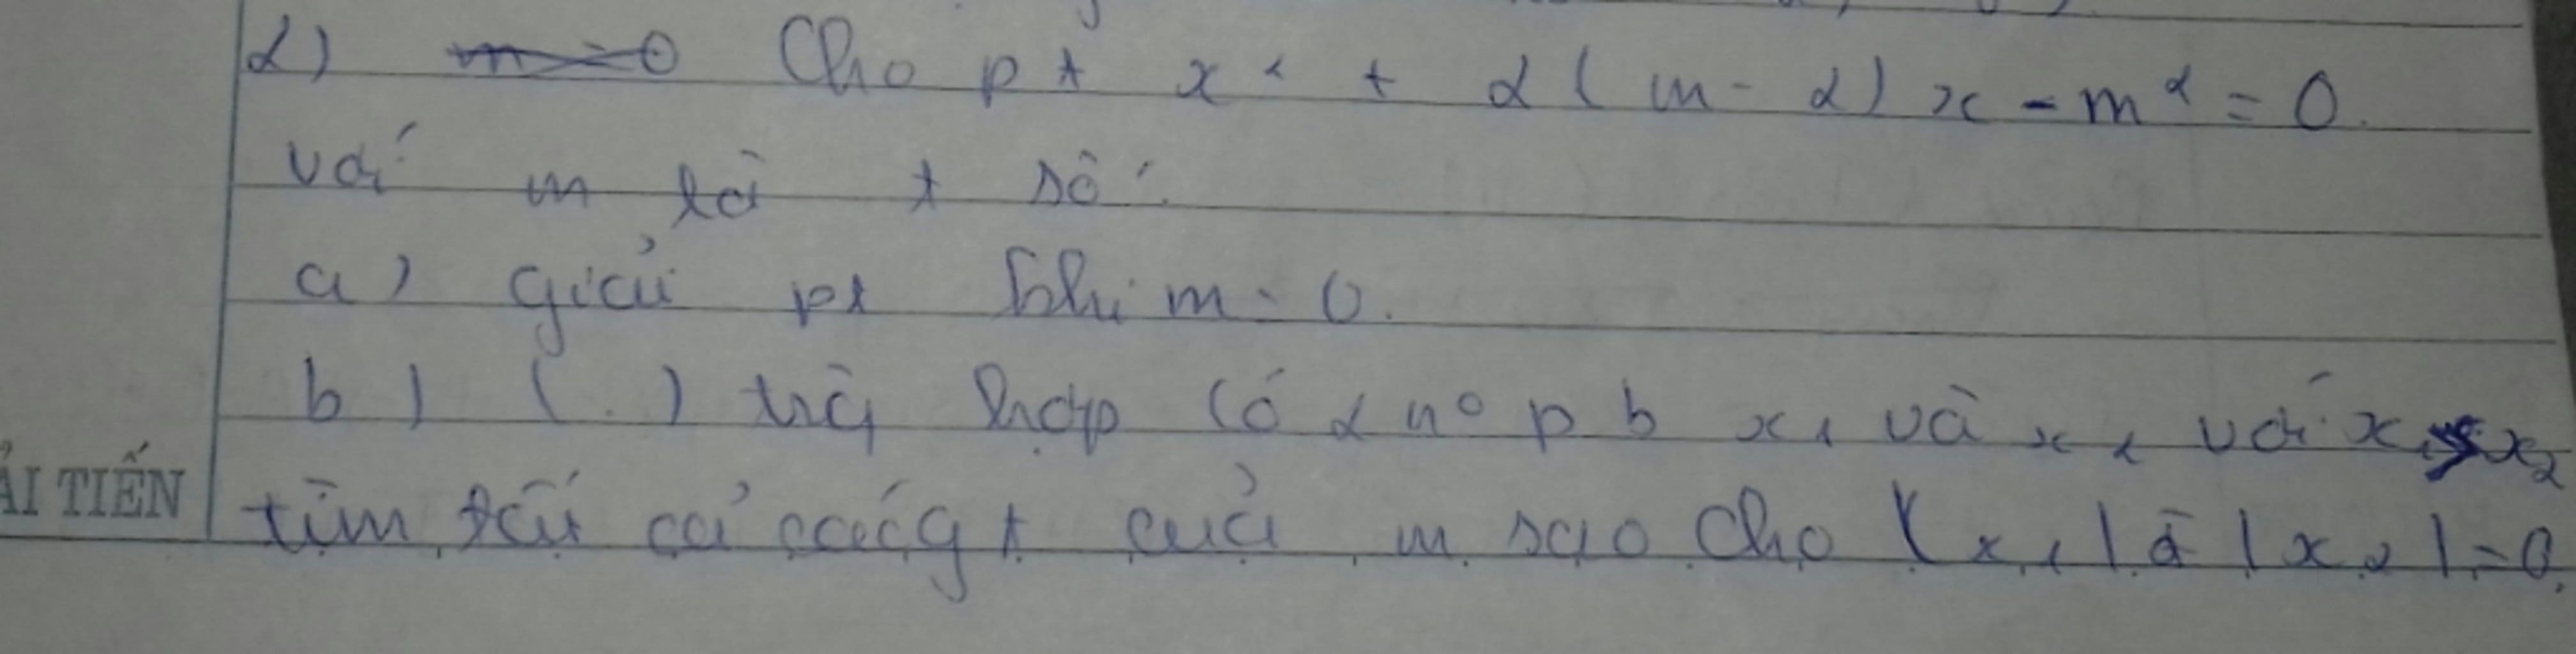 2) Cho pt x² + 2(m - 2)x - m² = 0.
với m là t số.
a) giải pt khi m = 0.
b) (.) trg hợp có 2 n° p b x₁ và x₂ với x₁ < x₂
ẢI TIẾN
tìm tất cả các gt của m sao cho |x₁| |x₂| = 0